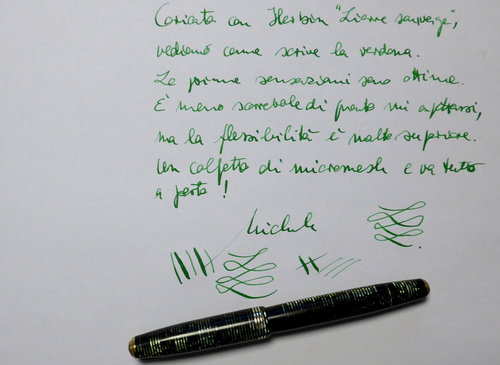 Caricata con Herbin "Lierre sauvage",
vediamo come scrive la verdona.
Le prime sensazioni sono ottime.
E' meno scorrevole di quanto mi aspettassi,
ma la flessibilità è molto superiore.
Un colpetto di micromesh e va tutto
a posto!
Michele